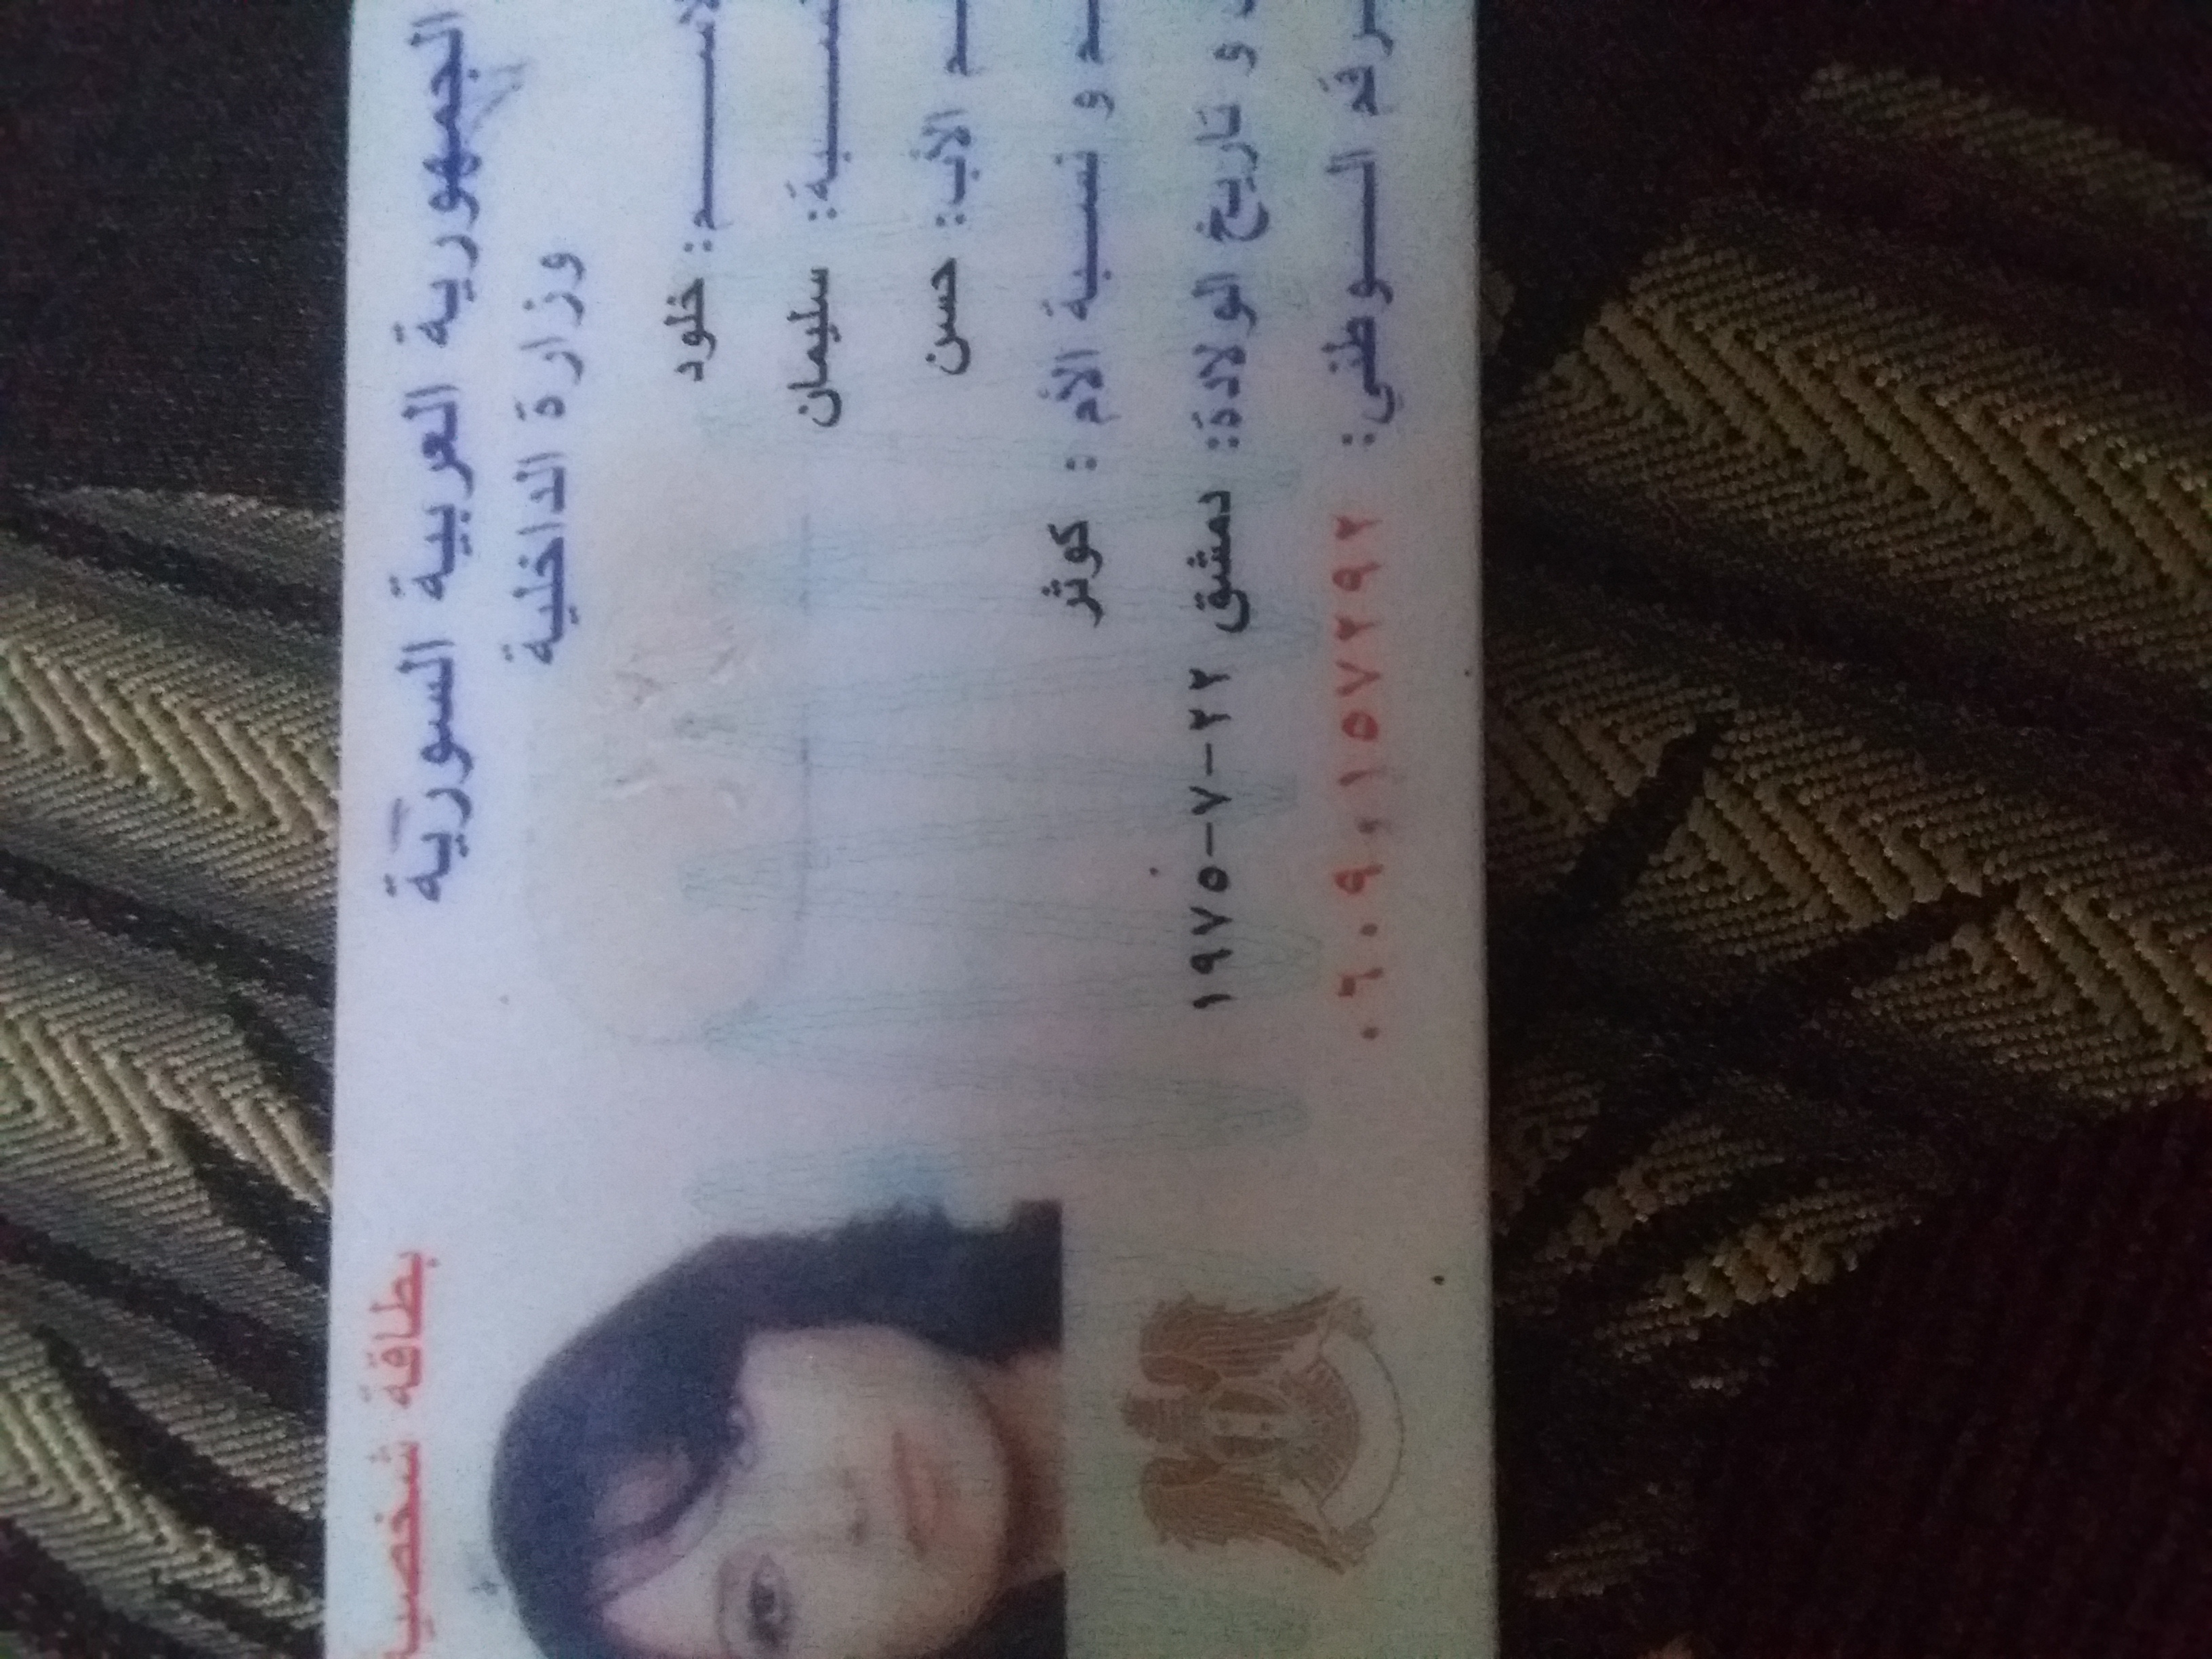 الجمهورية العربية السورية
وزارة الداخلية
بطاقة شخصية
خلود
سليمان
الأب: حسن
و نسبة الأم : كوثر
و تاريخ الولادة: دمشق ٢٢-٧-١٩٧٥
الوطني: ٠٦٠٩٠١٥٧٢٩٢